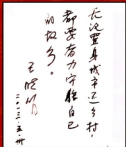 无论置身城市还是乡村，
都要着力守住自己
的故乡。
二〇二三.五.卅